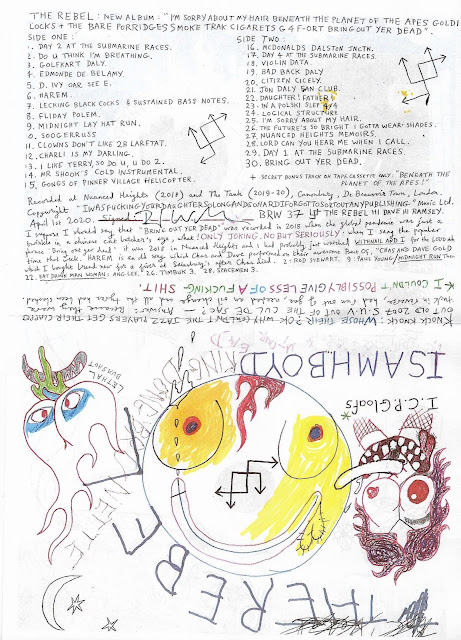 THE REBEL: NEW ALBUM: "I'M SORRY ABOUT MY HAIR BENEATH THE PLANET OF THE APES GOLDI
LOCKS + THE BARE PORRIDGES SMOKE TRAK CIGARETS & 4 FORT BRING OUT YER DEAD".
SIDE ONE:
1. DAY 2 AT THE SUBMARINE RACES.
2. DO U THINK I'M BREATHING.
3. GOLFKART DALY.
4. EDMONDE DE BELAMY.
5. D. IVY OAR SEE E.
6. HAREM.
7. LECKING BLACK COCKS & SUSTAINED BASS NOTES.
8. FLIDAY POLEM.
9. MIDNIGHT LAY HAT RUN.
10. SOOGERRUSS
11. CLOWNS DON'T LIKE 28 LARFTAT.
12. CHARLI IS MY DARLING.
13. I LIKE TERRY, SO DO U, U DO 2.
14. MR SHOOK'S GOLD INSTRUMENTAL.
15. GONGS OF PINNER VILLAGE HELICOPTER.
SIDE TWO:
16. MCDONALDS DALSTON JNCTN.
17. DAY 4 AT THE SUBMARINE RACES.
18. VIOLIN DATA.
19. BAD BACK DALY
20. CITIZEN CICELY.
21. JON DALY FAN CLUB.
22. DAUGHTER! FATHER!
23. IN A POLSKI SLEP 4x4
24. LOGICAL STRUCTURE
25. I'M SORRY ABOUT MY HAIR.
26. THE FUTURE'S SO BRIGHT I GOTTA WEAR SHADES.
27. NUANCED HEIGHTS MEMOIRS.
28. LORD CAN YOU HEAR ME WHEN I CALL.
29. DAY 1 AT THE SUBMARINE RACES.
30. BRING OUT YER DEAD.
+ SECRET BONUS TRACK ON TAPE CASSETTE ONLY: "BENEATH THE
PLANET OF THE APES!"
Recorded at Nuanced Heights (2018) and The Trask (2019-20), Canonbury, De Beauvoir Town, London.
Copyright "I WAS FUCKING YOUR DAUGHTER SO LONG AND SO HARD I FORGOT TO SORT OUT ANY PUBLISHING." Music Ltd.
April 1st 2020. Signed: BRW 37 THE REBEL HI DAVE III RAMSEY.
I suppose I should say that "BRING OUT YER DEAD" was recorded in 2018 when the global pandemic was just a
twinkle in a chinese cave barber's eye, what! ONLY JOKING. NO BUT SERIOUSLY: when I sang the popular
phrase 'Bring out yer dead' it was 2018 in Nuanced Heights and I had probably just watched WITHNAIL AND I for the 600th
time that week. HAREM is an old song which Chas and Dave performed on their awesome Best Of, "CHAS AND DAVE GOLD"
which I bought brand new for a fiver at Sainsbury's after Chas died. 2: ROD STEWART. 9: PAUL YOUNG/MIDNIGHT RUN THEN
22. EAT DRINK MAN WOMAN: ANG LEE. 26: TIMBUK 3. 28: SPACEMEN 3.
* I COULDN'T POSSIBLY GIVE LESS OF A FUCKING SHIT.
KNOCK KNOCK: WHOSE THEIR? OK: WHY COULDN'T THE JAZZ PLAYERS GET THEIR CLAPPED
OUT OLD 2007 S.U.V OUT OF THE CUL DE SAC? — ANSWER: Because they were
ISAMHBOYD
I.C.P. Gloafs
*
KING
LETHAL
THE REBEL